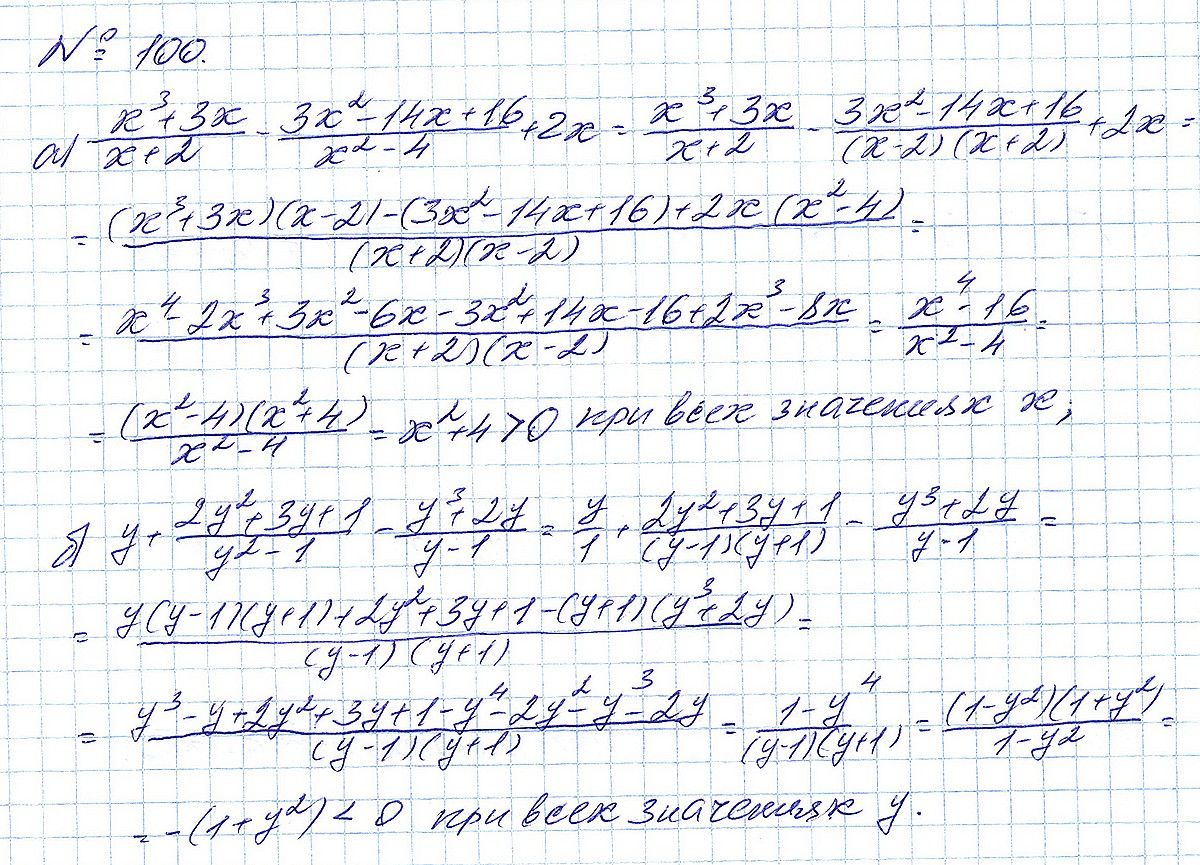 № 100.
а) (x³+3x)/(x+2) - (3x²-14x+16)/(x²-4) + 2x = (x³+3x)/(x+2) - (3x²-14x+16)/((x-2)(x+2)) + 2x =
= ((x³+3x)(x-2)-(3x²-14x+16)+2x(x²-4))/((x+2)(x-2)) =
= (x⁴-2x³+3x²-6x-3x²+14x-16+2x³-8x)/((x+2)(x-2)) = (x⁴-16)/(x²-4) =
= ((x²-4)(x²+4))/(x²-4) = x²+4>0 при всех значениях x;
б) y + (2y²+3y+1)/(y²-1) - (y³+2y)/(y-1) = y/1 + (2y²+3y+1)/((y-1)(y+1)) - (y³+2y)/(y-1) =
= (y(y-1)(y+1)+2y²+3y+1-(y+1)(y³+2y))/((y-1)(y+1)) =
= (y³-y+2y²+3y+1-y⁴-2y²-y³-2y)/((y-1)(y+1)) = (1-y⁴)/((y-1)(y+1)) = ((1-y²)(1+y²))/(1-y²) =
= -(1+y²) < 0 при всех значениях y.